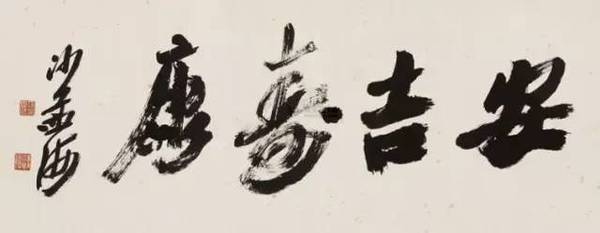 安吉寿康
沙孟海